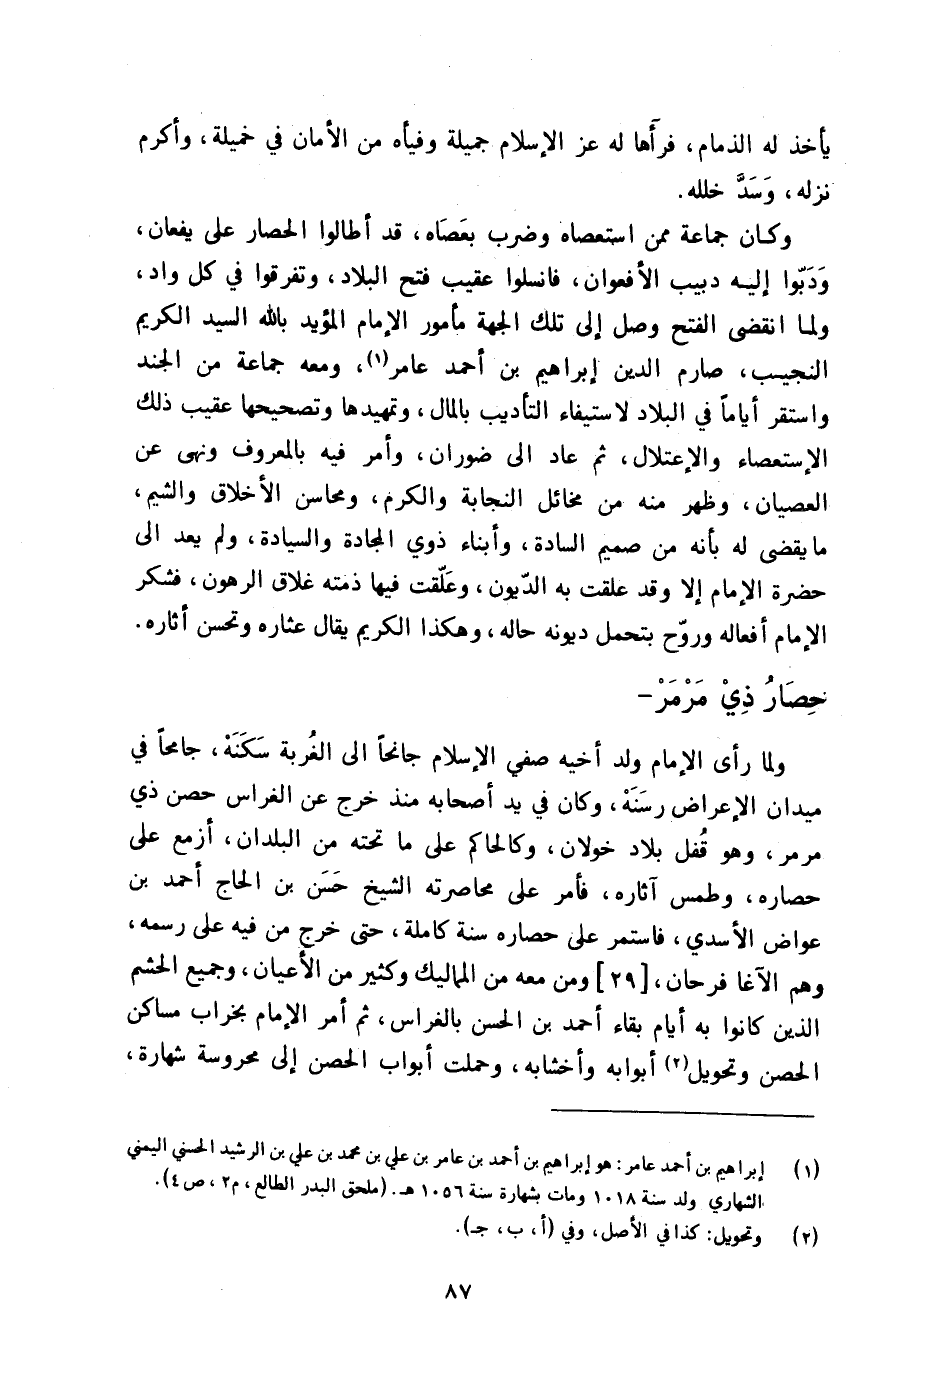 يأخذ له الذمام، فرآها له عز الإسلام جميلة وفيأه من الأمان في خميلة، وأكرم
نزله، وَسَدَّ خلله.
وكان جماعة ممن استعصاه وضرب بعَصَاه، قد أطالوا الحصار على يفعان،
وَدَبّوا إليه دبيب الأفعوان، فانسلوا عقيب فتح البلاد، وتفرقوا في كل واد،
ولما انقضى الفتح وصل إلى تلك الجهة مأمور الإمام المؤيد بالله السيد الكريم
النجيب، صارم الدين إبراهيم بن أحمد عامر(١)، ومعه جماعة من الجند
واستقر أياماً في البلاد لاستيفاء التأديب بالمال، وتمهيدها وتصحيحها عقيب ذلك
الإستعصاء والإعتلال، ثم عاد الى ضوران، وأمر فيه بالمعروف ونهى عن
العصيان، وظهر منه من مخائل النجابة والكرم، ومحاسن الأخلاق والشيم،
ما يقضى له بأنه من صميم السادة، وأبناء ذوي المجادة والسيادة، ولم يعد الى
حضرة الإمام إلا وقد علقت به الدّيون، وعَلّقت فيها ذمته غلاق الرهون، فشكر
الإمام أفعاله وروّح بتحمل ديونه حاله، وهكذا الكريم يقال عثاره وتحسن أثاره.
حِصَارُ ذِيْ مَرْمَرْ –
ولما رأى الإمام ولد أخيه صفي الإسلام جانحاً الى الغُربة سَكَنَهْ، جامحاً في
ميدان الإعراض رسَنَهْ، وكان في يد أصحابه منذ خرج عن الغراس حصن ذي
مرمر، وهو قُفل بلاد خولان، وكالحاكم على ما تحته من البلدان، أزمع على
حصاره، وطمس آثاره، فأمر على محاصرته الشيخ حَسَن بن الحاج أحمد بن
عواض الأسدي، فاستمر على حصاره سنة كاملة، حتى خرج من فيه على رسمه،
وهم الآغا فرحان، [٢٩] ومن معه من المماليك وكثير من الأعيان، وجميع الحشم
الذين كانوا به أيام بقاء أحمد بن الحسن بالغراس، ثم أمر الإمام بخراب مساكن
الحصن وتحويل(٢) أبوابه وأخشابه، وحملت أبواب الحصن إلى محروسة شهارة،
(١) إبراهيم بن أحمد عامر: هو إبراهيم بن أحمد بن عامر بن علي بن محمد بن علي بن الرشيد الحسني اليمني
الشهاري ولد سنة ١٠١٨ ومات بشهارة سنة ١٠٥٦ هـ. (ملحق البدر الطالع، م٢، ص٤).
(٢) وتحويل: كذا في الأصل، وفي (أ، ب، جـ).
٨٧